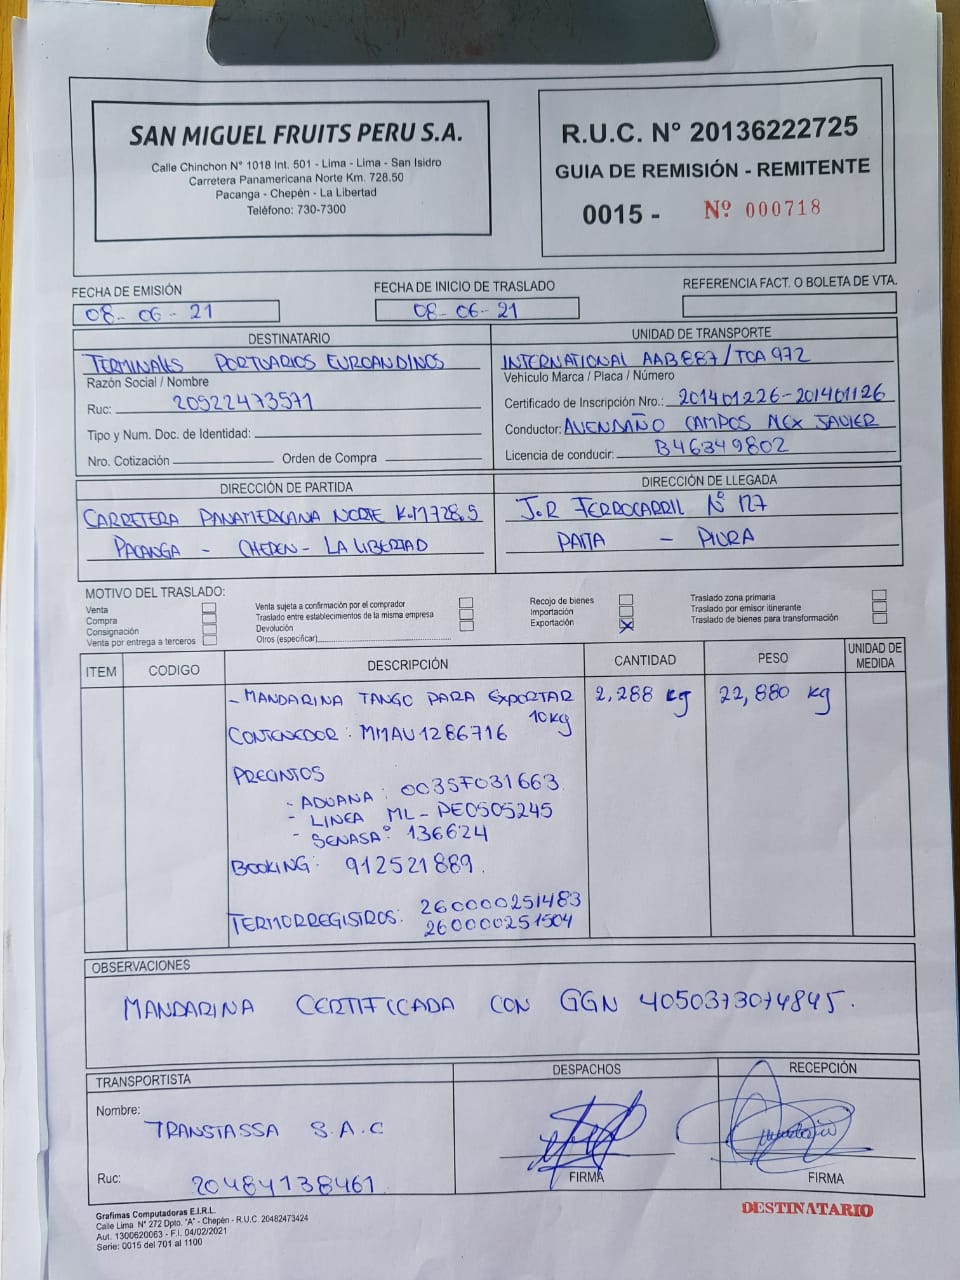 SAN MIGUEL FRUITS PERU S.A.
Calle Chinchon N° 1018 Int. 501 - Lima - Lima - San Isidro
Carretera Panamericana Norte Km. 728.50
Pacanga - Chepén - La Libertad
Teléfono: 730-7300
R.U.C. N° 20136222725
GUIA DE REMISIÓN - REMITENTE
0015 - Nº 000718
FECHA DE EMISIÓN
08 - 06 - 21
FECHA DE INICIO DE TRASLADO
08 - 06 - 21
REFERENCIA FACT. O BOLETA DE VTA.
DESTINATARIO
TERMINALES PORTUARIOS EUROANDINOS
Razón Social / Nombre
Ruc: 20522473571
Tipo y Num. Doc. de Identidad:
Nro. Cotización Orden de Compra
UNIDAD DE TRANSPORTE
INTERNATIONAL AAB887/TCA972
Vehículo Marca / Placa / Número
Certificado de Inscripción Nro.: 201401226-201401126
Conductor: AVENDAÑO CAMPOS ALEX JAVIER
Licencia de conducir: B46349802
DIRECCIÓN DE PARTIDA
CARRETERA PANAMERICANA NORTE K.M 728.5
PACANGA - CHEPEN - LA LIBERTAD
DIRECCIÓN DE LLEGADA
J.R FERROCARRIL Nº 127
PAITA - PIURA
MOTIVO DEL TRASLADO:
Venta
Compra
Consignación
Venta por entrega a terceros
Venta sujeta a confirmación por el comprador
Traslado entre establecimientos de la misma empresa
Devolución
Otros (especificar)
Recojo de bienes
Importación
Exportación X
Traslado zona primaria
Traslado por emisor itinerante
Traslado de bienes para transformación
ITEM CODIGO DESCRIPCIÓN CANTIDAD PESO UNIDAD DE MEDIDA
- MANDARINA TANGO PARA EXPORTAR 2,288 kg 22,880 kg
10kg
CONTENEDOR : MMAU1286716
PRECINTOS
- ADUANA : 0035F031663
- LINEA ML-PE0505245
- SENASA: 136624
BOOKING: 912521889.
TERMORREGISTROS: 260000251483
260000251504
OBSERVACIONES
MANDARINA CERTIFICADA CON GGN 4050373074845.
TRANSPORTISTA
Nombre:
TRANSTASSA S.A.C
Ruc: 20484138461
DESPACHOS
FIRMA
RECEPCIÓN
FIRMA
Grafimas Computadoras E.I.R.L.
Calle Lima N° 272 Dpto. "A" - Chepén - R.U.C. 20482473424
Aut. 1300620063 - F.I. 04/02/2021
Serie: 0015 del 701 al 1100
DESTINATARIO